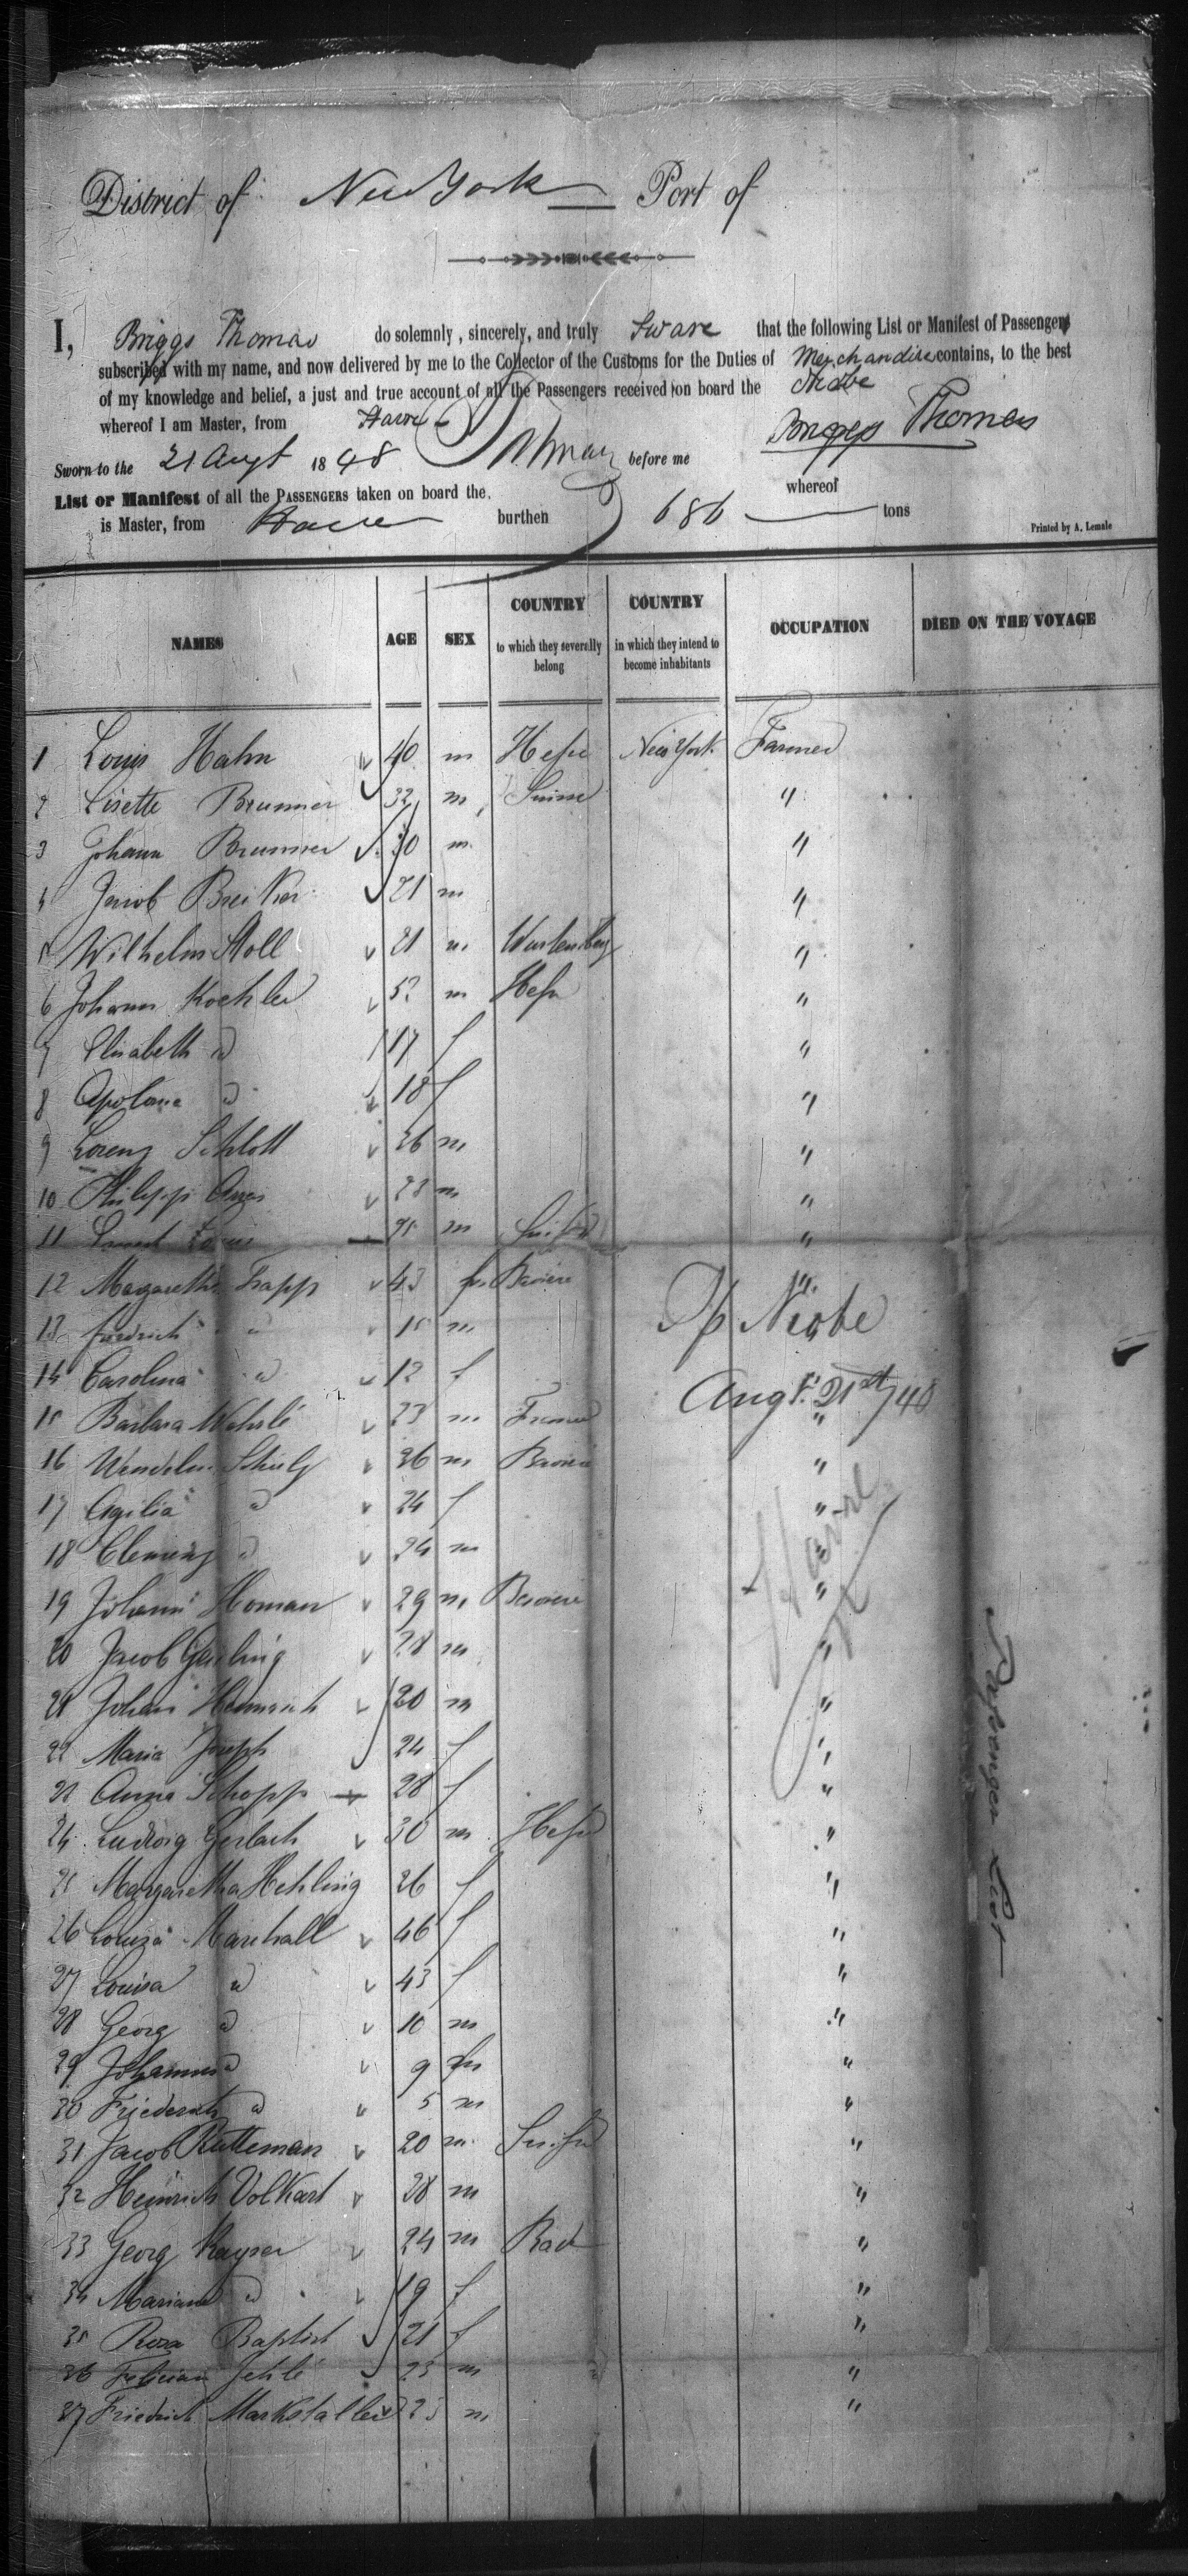 District of New York Port of
I, Briggs Thomas do solemnly, sincerely, and truly Sware that the following List or Manifest of Passengers
subscribed with my name, and now delivered by me to the Collector of the Customs for the Duties of Merchandise contains, to the best
of my knowledge and belief, a just and true account of all the Passengers received on board the Niobe
whereof I am Master, from Havre Briggs Thomas
Sworn to the 21 Augt 1848 before me
List or Manifest of all the PASSENGERS taken on board the, whereof
is Master, from Havre burthen 686 tons
Printed by A. Lemale
NAMES AGE SEX COUNTRY to which they severally belong COUNTRY in which they intend to become inhabitants OCCUPATION DIED ON THE VOYAGE
1 Louis Hahn 40 m Hesse New York Farmer
2 Lisette Brunner 32 m Suisse "
3 Johann Brunner 30 m "
4 Jacob 21 m "
5 Wilhelm Stoll 21 m Wurtemberg "
6 Johann Koehler 52 m Hesse "
7 Elisabeth d 17 f "
8 Apolona d 18 f "
9 Lorenz Schlott 26 m "
10 Philipp 23 m "
11 m "
12 Margaretha Trapp 43 Baviere "
13 friedrich d 15 m "
Sp Niobe
14 Carolina d 12 f "
Augt. 21st/48
15 Barbara Wehrlé 23 m France "
16 Wendelin 26 m Baviere "
17 d 24 f "
18 Clemenz d 24 m "
Havre
19 Johann Homan 29 m Baviere "
20 Jacob 28 m "
21 Johann Heinrich 20 m "
22 Maria Joseph 24 f "
23 Anna Schopp 28 f "
24 Ludwig Gerlach 30 m Hesse "
25 Margaretha Hehling 26 f "
26 Louisa Marshall 46 f "
27 Louisa d 43 f "
28 Georg d 10 m "
29 Johannes d 9 m "
30 Friederich d 5 m "
31 Jacob Rutteman 20 m Suisse "
32 Heinrich Volkart 28 m "
33 Georg Kayser 24 m Bade "
34 Mariana d 19 f "
35 Rosa Baptist 21 f "
36 Felician Jehlé 23 m "
37 Friedrich Markstaller 23 m "
Passenger List